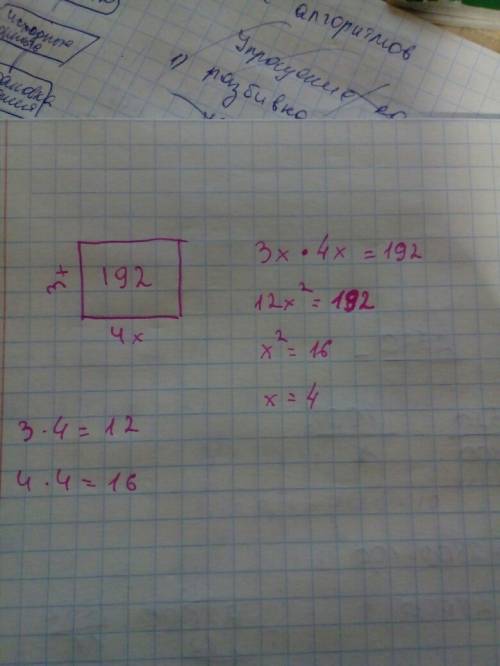 алгоритмов
1) Упрощение
разбивно
192
3x
4x
3x · 4x = 192
12x² = 192
x² = 16
x = 4
3 · 4 = 12
4 · 4 = 16